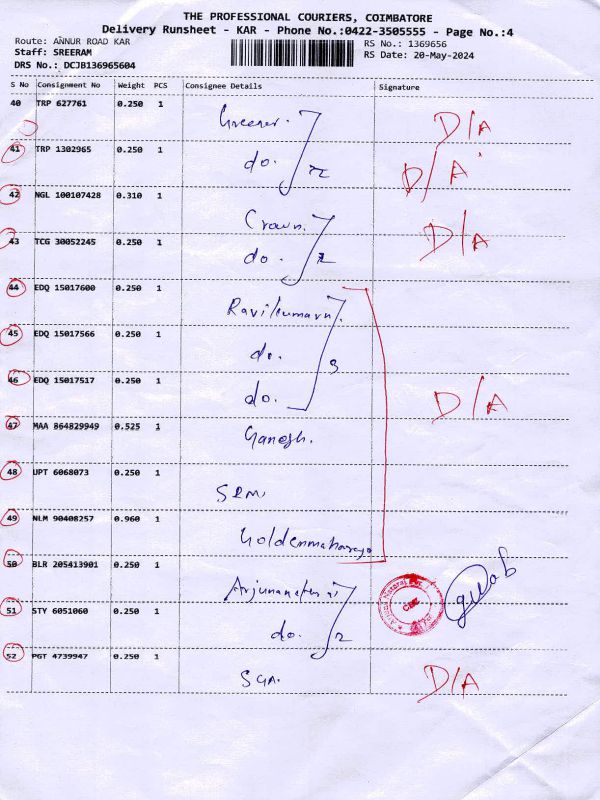 THE PROFESSIONAL COURIERS, COIMBATORE
Delivery Runsheet - KAR - Phone No.:0422-3505555 - Page No.:4
Route: ANNUR ROAD KAR RS No.: 1369656
Staff: SREERAM RS Date: 20-May-2024
DRS No.: DCJB136965604
S No Consignment No Weight PCS Consignee Details Signature
40 TRP 627761 0.250 1 Greener. D/A
41 TRP 1302965 0.250 1 do. 2 D/A
42 NGL 100107428 0.310 1 Crown.
43 TCG 30052245 0.250 1 do. 2 D/A
44 EDQ 15017600 0.250 1 Ravikumarn.
45 EDQ 15017566 0.250 1 do. 3
46 EDQ 15017517 0.250 1 do. D/A
47 MAA 864829949 0.525 1 Ganesh.
48 UPT 6068073 0.250 1 SRM.
49 NLM 90408257 0.960 1 Goldenmaharaja
50 BLR 205413901 0.250 1
51 STY 6051060 0.250 1 do. 2
52 PGT 4739947 0.250 1 SGA. D/A